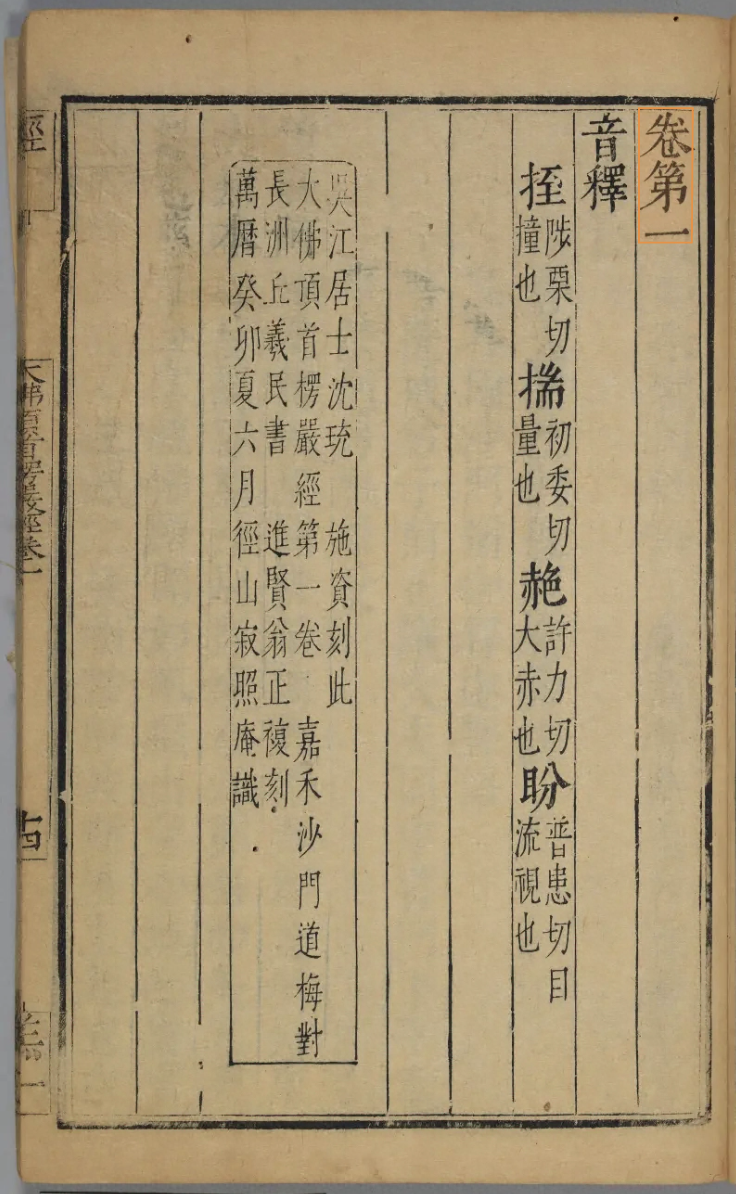 卷第一
音釋
挃陟栗切撞也 揣初委切量也 赩許力切大赤也 盼普患切目流視也
吳江居士沈琉 施資刻此
大佛頂首楞嚴經第一卷 嘉禾沙門道梅對
長洲丘羲民書 進賢翁正複刻
萬曆癸卯夏六月徑山寂照庵識
經
大佛頂首楞嚴經卷一
十四